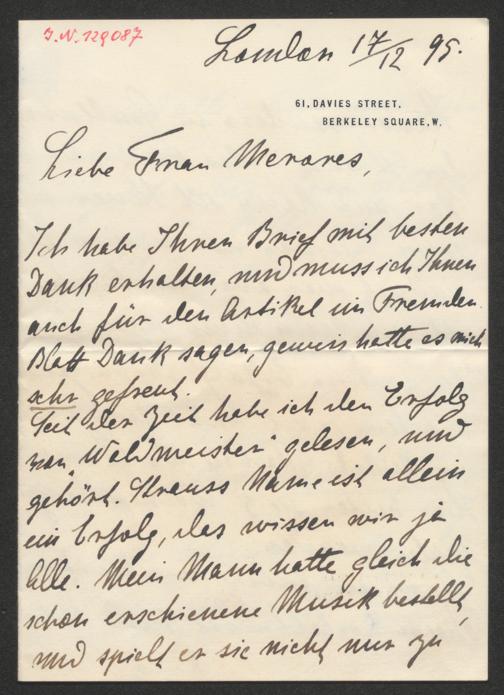 J.N. 129087
London 17/12 95.
61, DAVIES STREET,
BERKELEY SQUARE, W.
Liebe Frau Meroves,
Ich habe Ihren Brief mit besten
Dank erhalten, und muss ich Ihnen
auch für den Artikel im Fremden
Blatt Dank sagen, gewiss hatte es mich
sehr gefreut.
Seit der Zeit habe ich den Erfolg
von "Waldmeister" gelesen, und
gehört. Strauss Name ist allein
ein Erfolg, das wissen wir ja
Alle. Mein Mann hatte gleich die
schon erschienene Musik bestellt,
und spielt er sie nicht nur zu